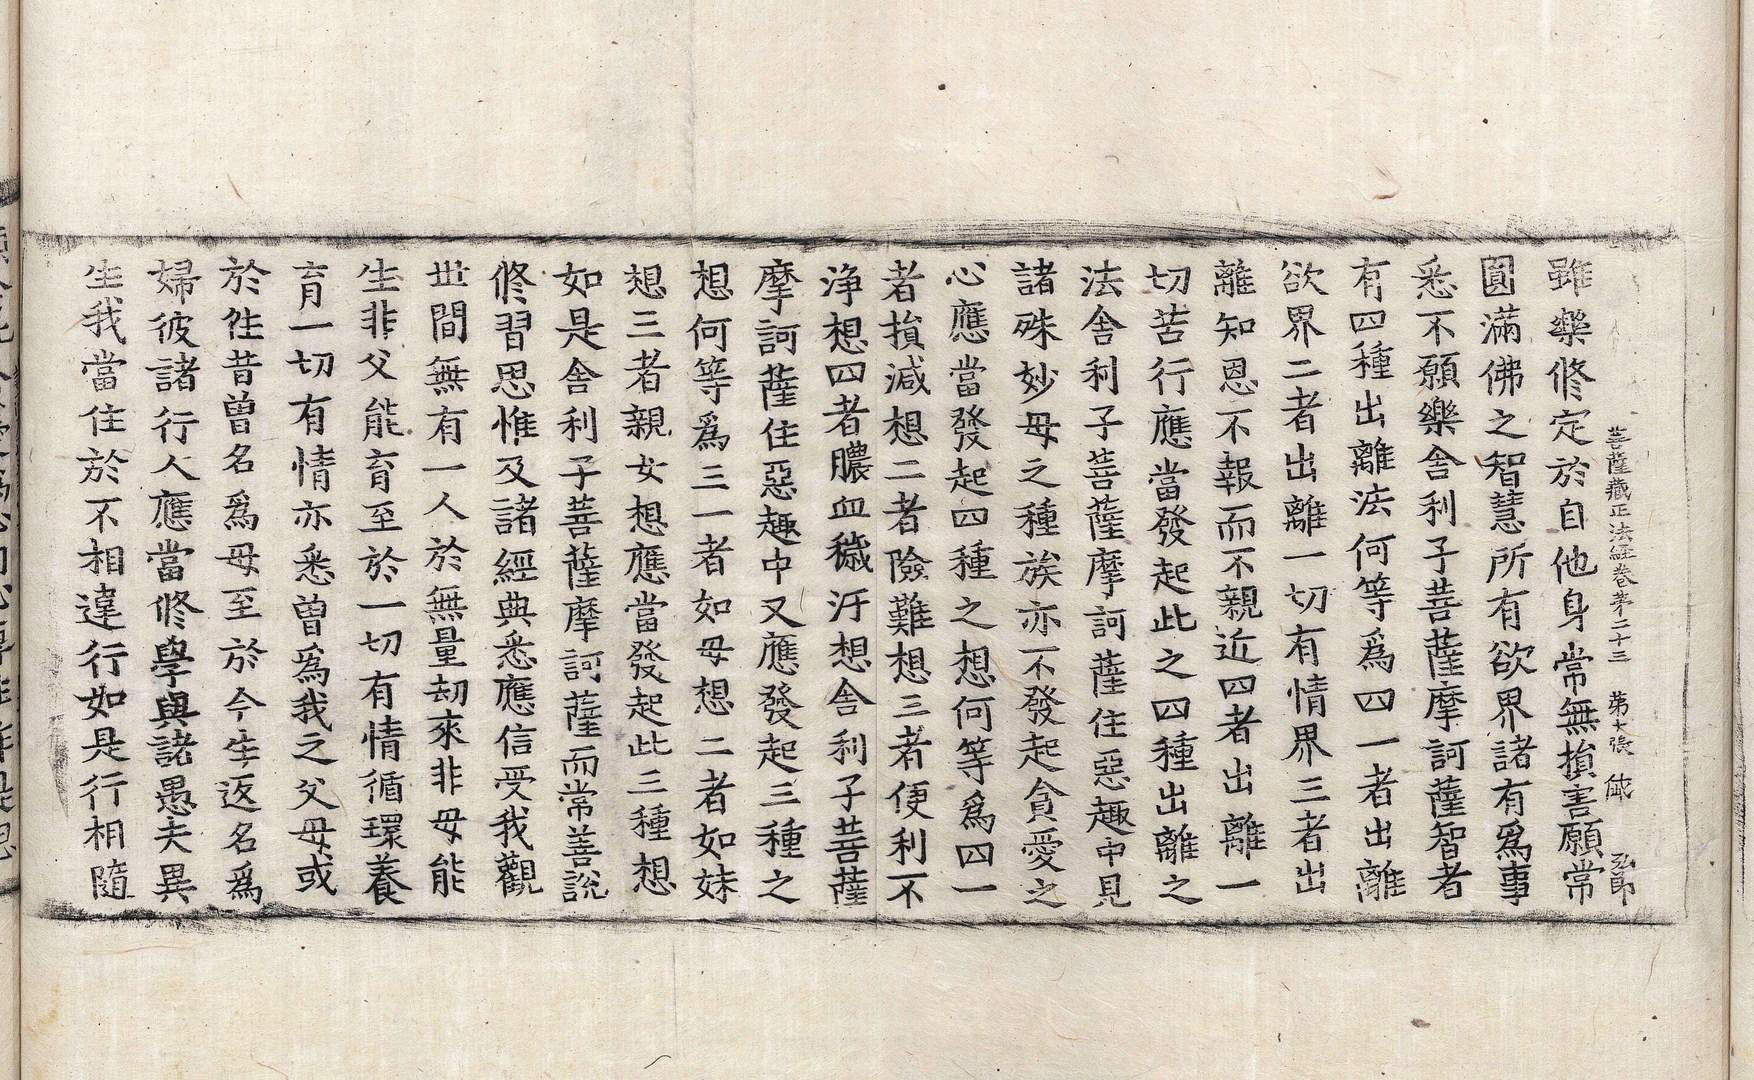 菩薩藏正法經卷苐二十三 苐六張 弘昂
雖樂修定於自他身常無損害願常
圓滿佛之智慧所有欲界諸有爲事
悉不願樂舍利子菩薩摩訶薩智者
有四種出離法何等爲四一者出離
欲界二者出離一切有情界三者出
離知恩不報而不親近四者出離一
切苦行應當發起此之四種出離之
法舍利子菩薩摩訶薩住惡趣中見
諸殊妙母之種族亦不發起貪愛之
心應當發起四種之想何等爲四一
者損減想二者險難想三者便利不
浄想四者膿血穢汙想舍利子菩薩
摩訶薩住惡趣中又應發起三種之
想何等爲三一者如母想二者如妹
想三者親女想應當發起此三種想
如是舍利子菩薩摩訶薩而常善說
修習思惟及諸經典悉應信受我觀
世間無有一人於無量劫來非母能
生非父能育至於一切有情循環養
育一切有情亦悉曽爲我之父母或
於徃昔曽名爲母至於今生返名爲
婦彼諸行人應當修學與諸愚夫異
生我當住於不相違行如是行相隨